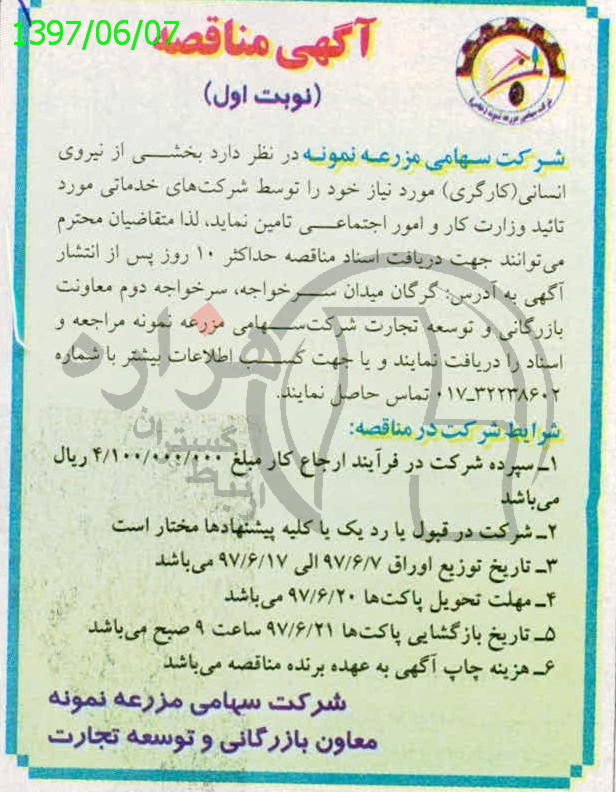 1397/06/07
آگهی مناقصه
(نوبت اول)
شرکت سهامی مزرعه نمونه در نظر دارد بخشی از نیروی
انسانی(کارگری) مورد نیاز خود را توسط شرکت‌های خدماتی مورد
تائید وزارت کار و امور اجتماعی تامین نماید، لذا متقاضیان محترم
می‌توانند جهت دریافت اسناد مناقصه حداکثر ۱۰ روز پس از انتشار
آگهی به آدرس: گرگان میدان سرخواجه، سرخواجه دوم معاونت
بازرگانی و توسعه تجارت شرکت‌سهامی مزرعه نمونه مراجعه و
اسناد را دریافت نمایند و یا جهت کسب اطلاعات بیشتر با شماره
۰۱۷-۳۲۲۳۸۶۰۲ تماس حاصل نمایند.
شرایط شرکت در مناقصه:
۱- سپرده شرکت در فرآیند ارجاع کار مبلغ ۴/۱۰۰/۰۰۰/۰۰۰ ریال
می‌باشد
۲- شرکت در قبول یا رد یک یا کلیه پیشنهادها مختار است
۳- تاریخ توزیع اوراق ۹۷/۶/۷ الی ۹۷/۶/۱۷ می‌باشد
۴- مهلت تحویل پاکت‌ها ۹۷/۶/۲۰ می‌باشد
۵- تاریخ بازگشایی پاکت‌ها ۹۷/۶/۲۱ ساعت ۹ صبح می‌باشد
۶- هزینه چاپ آگهی به عهده برنده مناقصه می‌باشد
شرکت سهامی مزرعه نمونه
معاون بازرگانی و توسعه تجارت
هزاره
گستران